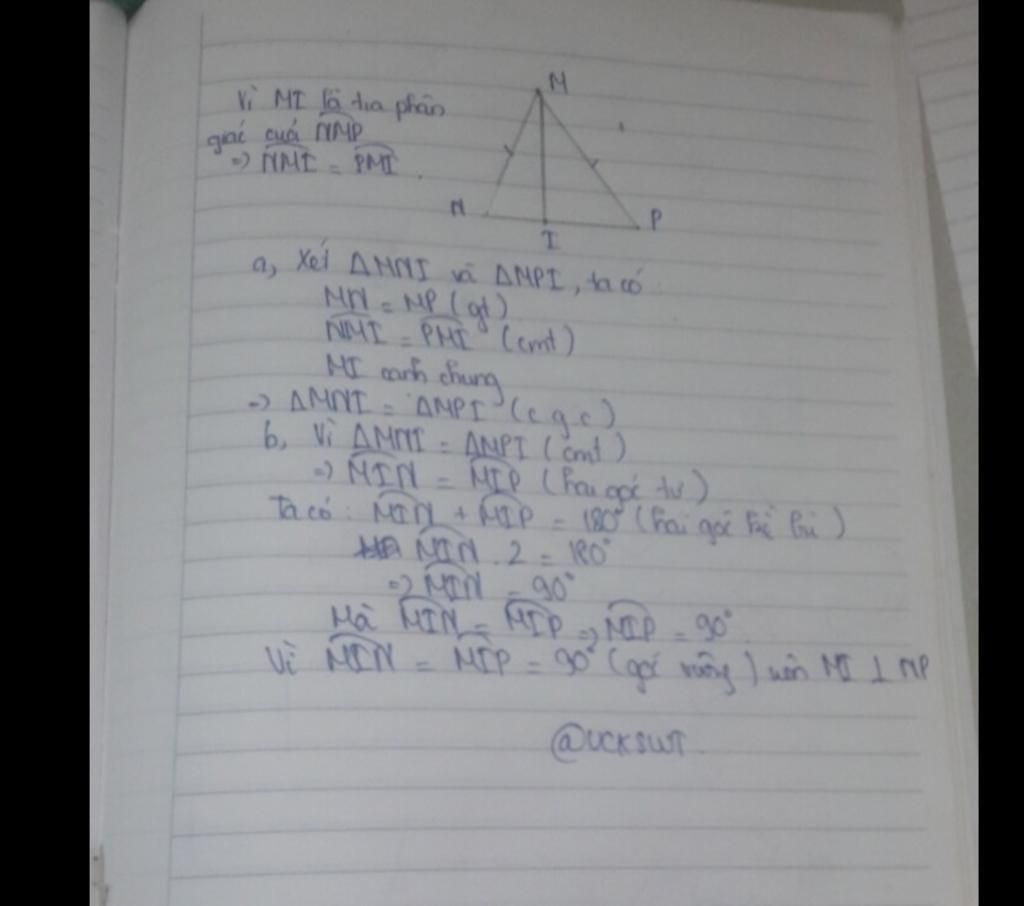 Vì MI là tia phân
giác cuả NMP
=> NMI = PMI.
M
N
P
I
a, Xét ΔMNI và ΔMPI, ta có
MN = MP (gt)
NMI = PMI (cmt)
MI cạnh chung
=> ΔMNI = ΔMPI (c g c)
b, Vì ΔMNI = ΔMPI (cmt)
=> MIN = MIP (hai góc tư)
Ta có: MIN + MIP = 180° (hai góc kề bù)
MIN . 2 = 180°
=> MIN = 90°
Mà MIN = MIP => MIP = 90°
Vì MIN = MIP = 90° (góc vuông) nên MI ⊥ NP
@UCKSUT